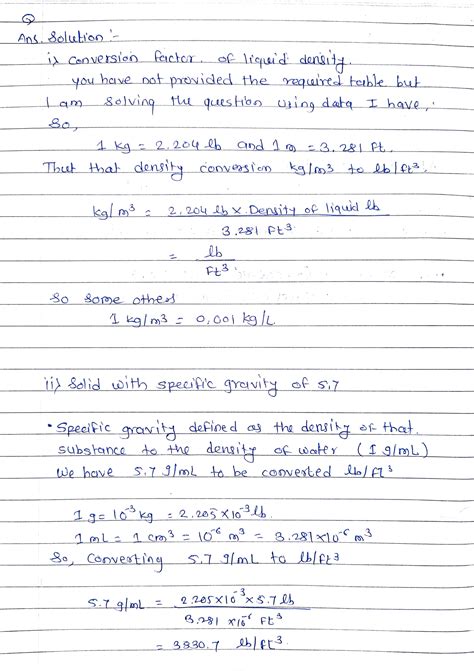 Q
Ans. Solution :-
i) Conversion factor of liquid density.
you have not provided the required table but
I am solving the question using data I have,
So,
1 kg = 2.204 lb and 1 m = 3.281 ft.
That that density conversion kg/m3 to lb/ft3.
kg/m³ = 2.204 lb x Density of liquid lb
3.281 ft3
= lb
ft3
So some others
1 kg/m3 = 0,001 kg/L.
ii) Solid with specific gravity of 5.7
• Specific gravity defined as the density of that
substance to the density of water (1 g/mL)
We have 5.7 g/mL to be converted lb/ft3
1 g = 10⁻³ kg = 2.205 x10⁻³ lb.
1 mL = 1 cm³ = 10⁻⁶ m³ = 3.281x10⁻⁶ m³
So, Converting 5.7 g/mL to lb/ft3
5.7 g/mL = 2.205x10⁻³ x 5.7 lb
3.281 x10⁻⁶ ft3
= 3830.7 lb/ft3.